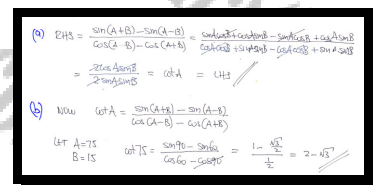 (a) RHS = sin(A+B) - sin(A-B) / cos(A-B) - cos(A+B) = sinAcosB + cosAsinB - sinAcosB + cosAsinB / cosAcosB + sinAsinB - cosAcosB + sinAsinB
= 2cosAsinB / 2sinAsinB = cotA = LHS
(b) NOW cotA = sin(A+B) - sin(A-B) / cos(A-B) - cos(A+B)
LET A=75
B=15
cot75 = sin90 - sin60 / cos60 - cos90 = 1 - √3/2 / 1/2 = 2-√3